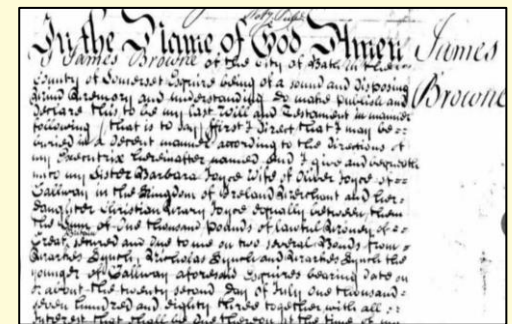 In the Name of God Amen
James
Browne
I James Browne of the City of Bath in the
County of Somerset Esquire being of a sound and disposing
Mind Memory and understanding Do make publish and
Declare this to be my last Will and Testament in manner
following that is to say ffirst I Direct that I may be
buried in a Decent manner according to the Directions of
my Executrix hereinafter named and I give and bequeath
unto my Sister Barbara Joyce Wife of Oliver Joyce of
Gallway in the Kingdom of Ireland Merchant and her
daughter Christian Joyce equally between them
the Sum of One thousand Pounds of lawful Money of
Great Britain secured and Due to me on two several Bonds from
Lynch, Nicholas Lynch and Lynch the
younger of Gallway aforesaid Esquires bearing Date on
or about the twenty second day of July One thousand
seven hundred and Eighty three together with all
Interest that shall be Due thereon at the time of my